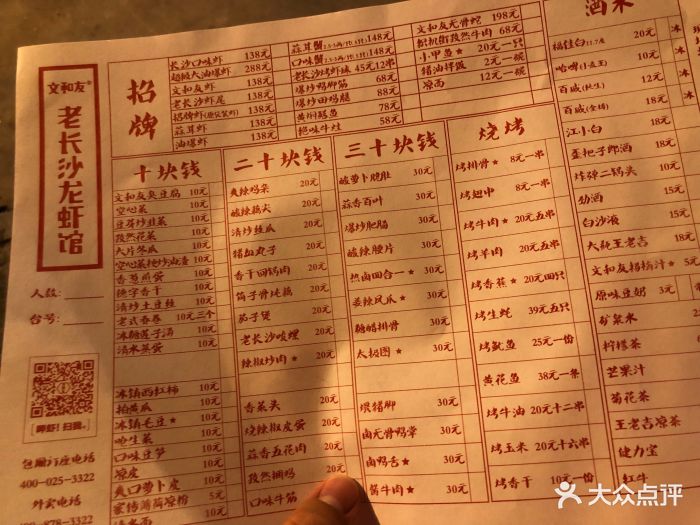 文和友
老长沙龙虾馆
人数:
台号:
呷虾!扫我。
包厢订座电话
400-025-3322
外卖电话
400-878-3322
招牌
长沙口味虾 138元
超级大油爆虾 288元
文和友虾 138元
老长沙虾尾 138元
138元
蒜茸虾 138元
油爆虾 138元
蒜茸蟹 148元
口味蟹 148元
老长沙烤虾球 45元12串
爆炒蹄筋 68元
爆炒田鸡腿 88元
黄焖鳝鱼 78元
绝味牛灶 58元
文和友无骨蛇 198元
孜然牛肉 68元
小甲鱼★ 20元一只
猪油拌饭 2元一碗
凉面 12元一碗
十块钱
文和友臭豆腐 10元
空心菜 10元
豆芽炒韭菜 10元
孜然花菜 10元
大片冬瓜 10元
空心菜梗炒油渣 10元
香葱煎蛋 10元
辣字香干 10元
清炒土豆丝 10元
老式春卷 10元三个
冰糖莲子汤 10元
清水蒸蛋 10元
冰镇西红柿 10元
拍黄瓜 10元
冰镇毛豆★ 10元
呛生菜 10元
口味豆笋 10元
凉皮 10元
爽口萝卜皮 10元
蜜传薄荷凉粉 5元
10元
二十块钱
爽辣鸡杂 20元
酸辣藕尖 20元
清炒丝瓜 20元
猪血丸子 20元
香干回锅肉 20元
筒子骨炖藕 20元
茄子煲 20元
老长沙嗦螺 20元
辣椒炒肉★ 20元
香菜头 20元
烧辣椒皮蛋 20元
蒜香五花肉 20元
孜然捆鸡 20元
口味牛筋
三十块钱
酸萝卜脆肚 30元
蒜香百叶 30元
爆炒肥肠 30元
酸辣腰片 30元
热卤四合一★ 30元
姜辣凤爪★ 30元
糖醋排骨 30元
太极图★ 30元
煨猪脚 30元
卤无骨鸭掌 30元
卤鸭舌★ 30元
酱牛肉★ 30元
烧烤
烤排骨★ 8元一串
烤翅中 8元一串
烤牛肉★ 20元五串
烤羊肉 20元五串
烤香蕉★ 20元四只
烤生蚝 39元五只
烤鱿鱼 25元一份
黄花鱼 38元一条
烤牛油 20元十二串
烤玉米 20元十六串
烤香干 10元一份
酒水
福佳白 20元
哈啤(小麦王) 10元
百威(纯生) 12元
百威(金樽) 18元
江小白 18元
歪把子郎酒
炸弹二锅头 10元
劲酒 15元
白沙液 15元
大瓶王老吉 18元
文和友招榆汁★ 5元
原味豆奶 3元
矿泉水
柠檬茶
芒果汁
菊花茶
王老吉凉茶
健力宝
红牛
大众点评